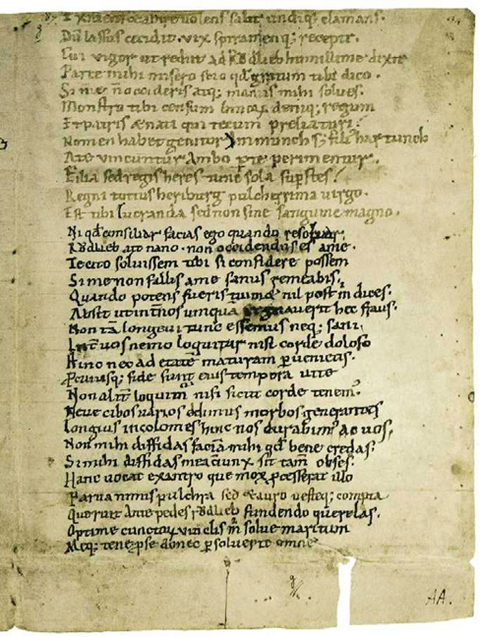 volens salit undiq; clamans.
Dū lassus cecidit. vix spiramenq; recepit.
Cui vigor ut rediit ad Rŏdlieb humillime dixit
Parce mihi misero scio qd gratum tibi dico.
Si me n̄ occideris atq; man' mihi solves.
Monstro tibi censum binoꝝ deniq; regum
Et patris & nati qui tecum preliaturi.
Nomen habet genitor Immunch s; fili' hartunch
A te vincuntur ambo perimentur.
Filia sed regis heres tunc sola supstes.
Regni totius heriburg pulcherrima virgo.
Est tibi lucranda sed non sine sanguine magno.
Ni qd consiliar facias ego quando resolvar.
Rŏdlieb ait nano. non occidendus es a me.
Te cito solvissem tibi si confidere possem
Si me non fallis a me sanus remeabis.
Quando potens fueris nil post dices.
Absit ut int nos unqua regnaverit hec fraus.
Non tā longevi tunc essemus neq; sani.
Int vos nemo loquitur nisi corde doloso
Hinc nec ad etatē maturam puenietis.
P cuiusq; fide sunt eius tempora vite
Non alit loquim nisi sicut corde tenem'.
Neve cibos varios edimus morbos generantes
Longius incolomes hinc nos durabim' ac vos.
Non mihi diffidas faciā mihi qd bene credas.
Si mihi diffidas mea ciunx sit tam̄ obses.
Hanc vocat ex antro que mox pcesserat illo
Parva nimis pulchra sed & auro vesteq; compta
Que ruit ante pedes rŏdlieb fundendo querelas.
Optime cunctoꝝ vinclis m̄ solve maritum
Meq; tene p se donec psolverit omne
AA.